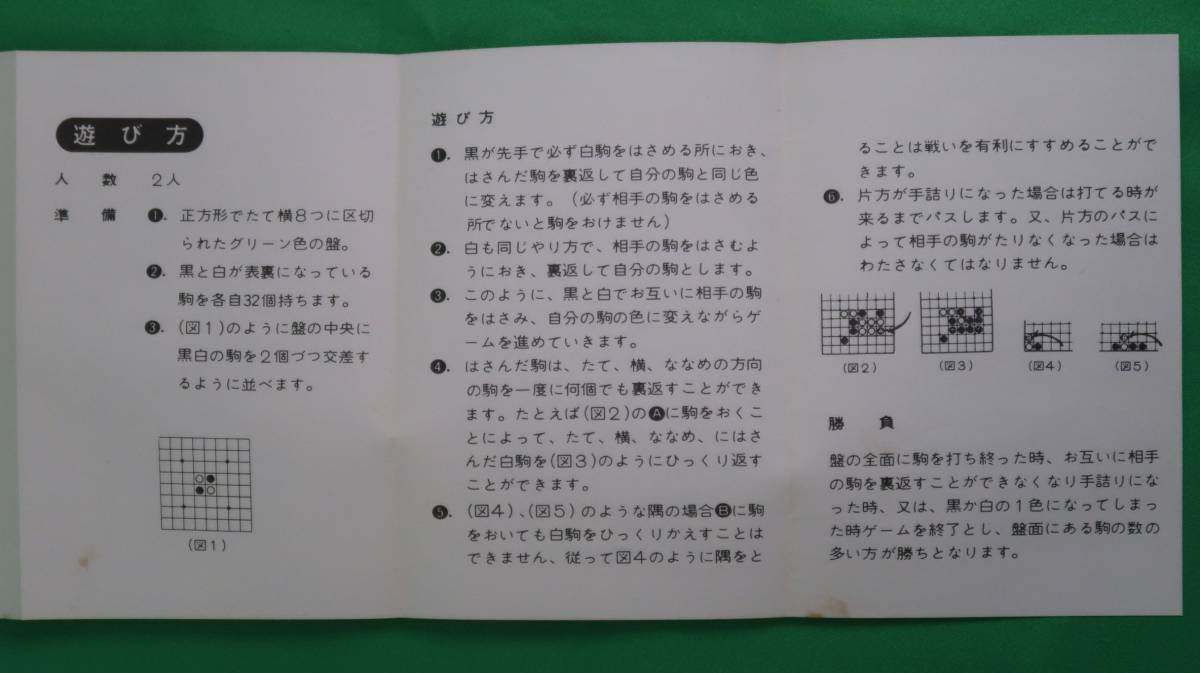 遊び方
人数 2人
準備 ❶. 正方形でたて横8つに区切
られたグリーン色の盤。
❷. 黒と白が表裏になっている
駒を各自32個持ちます。
❸. (図1)のように盤の中央に
黒白の駒を2個づつ交差す
るように並べます。
(図1)
遊び方
❶. 黒が先手で必ず白駒をはさめる所におき、
はさんだ駒を裏返して自分の駒と同じ色
に変えます。(必ず相手の駒をはさめる
所でないと駒をおけません)
❷. 白も同じやり方で、相手の駒をはさむよ
うにおき、裏返して自分の駒とします。
❸. このように、黒と白でお互いに相手の駒
をはさみ、自分の駒の色に変えながらゲ
ームを進めていきます。
❹. はさんだ駒は、たて、横、ななめの方向
の駒を一度に何個でも裏返すことができ
ます。たとえば(図2)の🅐に駒をおくこ
とによって、たて、横、ななめ、にはさ
んだ白駒を(図3)のようにひっくり返す
ことができます。
❺. (図4)、(図5)のような隅の場合🅑に駒
をおいても白駒をひっくりかえすことは
できません、従って図4のように隅をと
ることは戦いを有利にすすめることがで
きます。
❻. 片方が手詰りになった場合は打てる時が
来るまでパスします。又、片方のパスに
よって相手の駒がたりなくなった場合は
わたさなくてはなりません。
(図2) (図3) (図4) (図5)
勝負
盤の全面に駒を打ち終った時、お互いに相手
の駒を裏返すことができなくなり手詰りにな
った時、又は、黒か白の1色になってしまっ
た時ゲームを終了とし、盤面にある駒の数の
多い方が勝ちとなります。